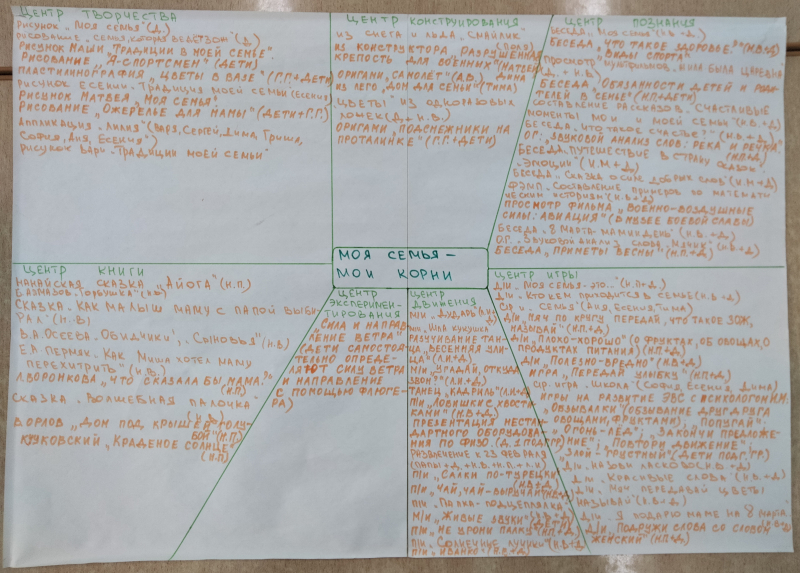 ЦЕНТР ТВОРЧЕСТВА
РИСУНОК „МОЯ СЕМЬЯ" (Д.)
РИСОВАНИЕ „СЕМЬЯ, КОТОРАЯ ВЕДЁТ ЗОЖ" (Д)
РИСУНОК НАШИ „ТРАДИЦИИ В МОЕЙ СЕМЬЕ"
РИСОВАНИЕ „Я-СПОРТСМЕН" (ДЕТИ)
ПЛАСТИЛИНОГРАФИЯ „ЦВЕТЫ В ВАЗЕ" (Г.Г.+ДЕТИ)
РИСУНОК ЕСЕНИИ. ТРАДИЦИЯ МОЕЙ СЕМЬИ (ЕСЕНИЯ)
РИСУНОК МАТВЕЯ „МОЯ СЕМЬЯ"
РИСОВАНИЕ „ОЖЕРЕЛЬЕ ДЛЯ МАМЫ" (ДЕТИ+Г.Г.)
АППЛИКАЦИЯ „ЛИЛИЯ" (ВАРЯ, СЕРГЕЙ, ДИМА, ГРИША,
СОФИЯ, АНЯ, ЕСЕНИЯ")
РИСУНОК ВАРИ „ТРАДИЦИИ МОЕЙ СЕМЬИ"
ЦЕНТР КОНСТРУИРОВАНИЯ
ИЗ СНЕГА И ЛЬДА „СМАЙЛИК"
ИЗ КОНСТРУКТОРА „РАЗРУШЕННАЯ
КРЕПОСТЬ ДЛЯ ВОЕННЫХ" (МАТВЕЙ
ОРИГАМИ „САМОЛЁТ" (Д.В.) ДИМА
ИЗ ЛЕГО „ДОМ ДЛЯ СЕМЬИ" (ТИМА)
„ЦВЕТЫ" ИЗ ОДНОРАЗОВЫХ
ЛОЖЕК (Д.+Н.В.)
ОРИГАМИ „ПОДСНЕЖНИКИ НА
ПРОТАЛИНКЕ" (Г.Г.+ДЕТИ)
ЦЕНТР ПОЗНАНИЯ
БЕСЕДА „МОЯ СЕМЬЯ" (Н.В.+Д.)
БЕСЕДА „ЧТО ТАКОЕ ЗДОРОВЬЕ?" (Н.В.+Д)
„ВИДЫ СПОРТА"
ПРОСМОТР МУЛЬТФИЛЬМОВ
(Д.+Н.В.)
БЕСЕДА „ОБЯЗАННОСТИ ДЕТЕЙ И РОДИ-
ТЕЛЕЙ В СЕМЬЕ" (Н.П+ДЕТИ)
СОСТАВЛЕНИЕ РАССКАЗОВ „СЧАСТЛИВЫЕ
МОМЕНТЫ МОИ И МОЕЙ СЕМЬИ" (Н.В.+Д)
БЕСЕДА „ЧТО ТАКОЕ СЧАСТЬЕ?" (Н.В.+Д)
ОГ: „ЗВУКОВОЙ АНАЛИЗ СЛОВ: РЕКА" И РЕЧКА"
(Н.П+Д)
БЕСЕДА. ПУТЕШЕСТВИЕ В СТРАНУ СКАЗОК:
„ЭМОЦИИ" (И.М+Д)
БЕСЕДА „СКАЗКА О СИЛЕ ДОБРЫХ СЛОВ" (И.М+Д)
ФЭМП. СОСТАВЛЕНИЕ ПРИМЕРОВ ПО МАТЕМАТИ
ЧЕСКИМ ИСТОРИЯМ (Н.В+Д)
ПРОСМОТР ФИЛЬМА „ВОЕННО-ВОЗДУШНЫЕ
СИЛЫ: АВИАЦИЯ" (О МУЗЕЕ БОЕВОЙ СЛАВЫ)
БЕСЕДА. 8 МАРТА-МАМИН ДЕНЬ" (Н.В.+Д)
О.Г. „ЗВУКОВОЙ АНАЛИЗ СЛОВА „МЯЧИК" (Н.В.+Д)
БЕСЕДА „ПРИМЕТЫ ВЕСНЫ" (Н.П.+Д)
МОЯ СЕМЬЯ –
МОИ КОРНИ
ЦЕНТР КНИГИ
НАНАЙСКАЯ СКАЗКА „АЙОГА" (Н.П.)
Б. АЛМАЗОВ „ГОРБУШКА"
СКАЗКА „КАК МАЛЫШ МАМУ С ПАПОЙ ВЫБИ-
РАЛ" (Н.В)
В.А. ОСЕЕВА „ОБИДЧИКИ", „СЫНОВЬЯ" (Н.В)
Е.А. ПЕРМЯК. КАК МИША ХОТЕЛ МАМУ
ПЕРЕХИТРИТЬ" (Н.В.)
Л. ВОРОНКОВА „ЧТО СКАЗАЛА БЫ МАМА?"
(Н.П)
СКАЗКА „ВОЛШЕБНАЯ ПАЛОЧКА"
(Н.В.)
В ОРЛОВ „ДОМ ПОД КРЫШЕЙ ГОЛУ-
БОЙ" (Н.П.)
ЧУКОВСКИЙ „КРАДЕНОЕ СОЛНЦЕ"
(Н.П)
ЦЕНТР
ЭКСПЕРИМЕН-
ТИРОВАНИЯ
„СИЛА И НАПРАВ
ЛЕНИЕ ВЕТРА"
(ДЕТИ САМОСТОЯ-
ТЕЛЬНО ОПРЕДЕ-
ЛЯЮТ СИЛУ ВЕТРА
И НАПРАВЛЕНИЕ
С ПОМОЩЬЮ ФЛЮГЕ-
РА)
ЦЕНТР
ДВИЖЕНИЯ
М/И „ДУДАРЬ"
М/И „ШЛА КУКУШКА
РАЗУЧИВАНИЕ ТАН-
ЦА „ВЕСЕННЯЯ УЛИ-
ЦА" (Л.И+Д)
М/И „УГАДАЙ, ОТКУДА
ЗВОН?" (Л.И.+Д)
ТАНЕЦ „КАДРИЛЬ" (Л.И+Д)
П/И „ЛОВИШКИ С ХВОСТИ-
КАМИ" (Н.В+Д)
ПРЕЗЕНТАЦИЯ НЕСТАН-
ДАРТНОГО ОБОРУДОВА-
НИЯ ПО ФИЗО (Д. 2 ПОДГР)
РАЗВЛЕЧЕНИЕ К 23 ФЕВРАЛЯ
(ПАПЫ+Д.+Н.В.+Н.П.+Л.И)
П/И „САЛКИ ПО-ТУРЕЦКИ
(Н.В+Д)
П/И „ЧАЙ, ЧАЙ-ВЫРУЧАЙ" (Н.В+Д)
П/И „ПАЛКА-ПОДЦЕПЛЯЛКА"
М/И „ЖИВЫЕ ЗВУКИ"
П/И „НЕ УРОНИ ПАЛКУ" (Н.П+Д)
П/И „СОЛНЕЧНЫЕ ЛУЧИКИ" (Н.В+Д)
П/И „ИВАНКО" (Н.П.+Д)
ЦЕНТР ИГРЫ
Д/И „МОЯ СЕМЬЯ-ЭТО.." (Н.П+Д.)
Д/И „КТО КЕМ ПРИХОДИТСЯ В СЕМЬЕ (Н.В+Д)
С/Р И „СЕМЬЯ" (АНЯ, ЕСЕНИЯ, ТИМА)
Д/И „МЯЧ ПО КРУГУ ПЕРЕДАЙ, ЧТО ТАКОЕ ЗОЖ,
НАЗЫВАЙ" (Н.П+Д)
Д/И „ПЛОХО-ХОРОШО" (О ФРУКТАХ, ОБ ОВОЩАХ, О
ПРОДУКТАХ ПИТАНИЯ) (Н.П+Д)
Д/И „ПОЛЕЗНО-ВРЕДНО" (Н.В+Д)
ИГРА „ПЕРЕДАЙ УЛЫБКУ" (Н.П+Д)
С/Р. ИГРА „ШКОЛА" (СОФИЯ, ЕСЕНИЯ, ДИМА)
ИГРЫ НА РАЗВИТИЕ ЭВС С ПСИХОЛОГОМ И.М:
„ОБЗЫВАЛКИ" (ОБЗЫВАНИЕ ДРУГ ДРУГА
ОВОЩАМИ, ФРУКТАМИ); „ПОПУГАЙ";
„ОГОНЬ-ЛЁД"; „ЗАКОНЧИ ПРЕДЛОЖЕ-
НИЕ"; „ПОВТОРИ ДВИЖЕНИЕ";
„ЗЛОЙ-ГРУСТНЫЙ" (ДЕТИ ПОДГ. ГР.)
Д/И „НАЗОВИ ЛАСКОВО" (Н.В.+Д)
Д/И „КРАСИВЫЕ СЛОВА" (Н.В.+Д)
Д/И „МЯЧ ПЕРЕДАВАЙ ЦВЕТЫ
НАЗЫВАЙ" (Н.В+Д)
Д/И „Я ПОДАРЮ МАМЕ НА 8 МАРТА
(Н.В+Д)
Д/И „ПОДРУЖИ СЛОВА СО СЛОВОМ
ЖЕНСКИЙ" (Н.П+Д.)